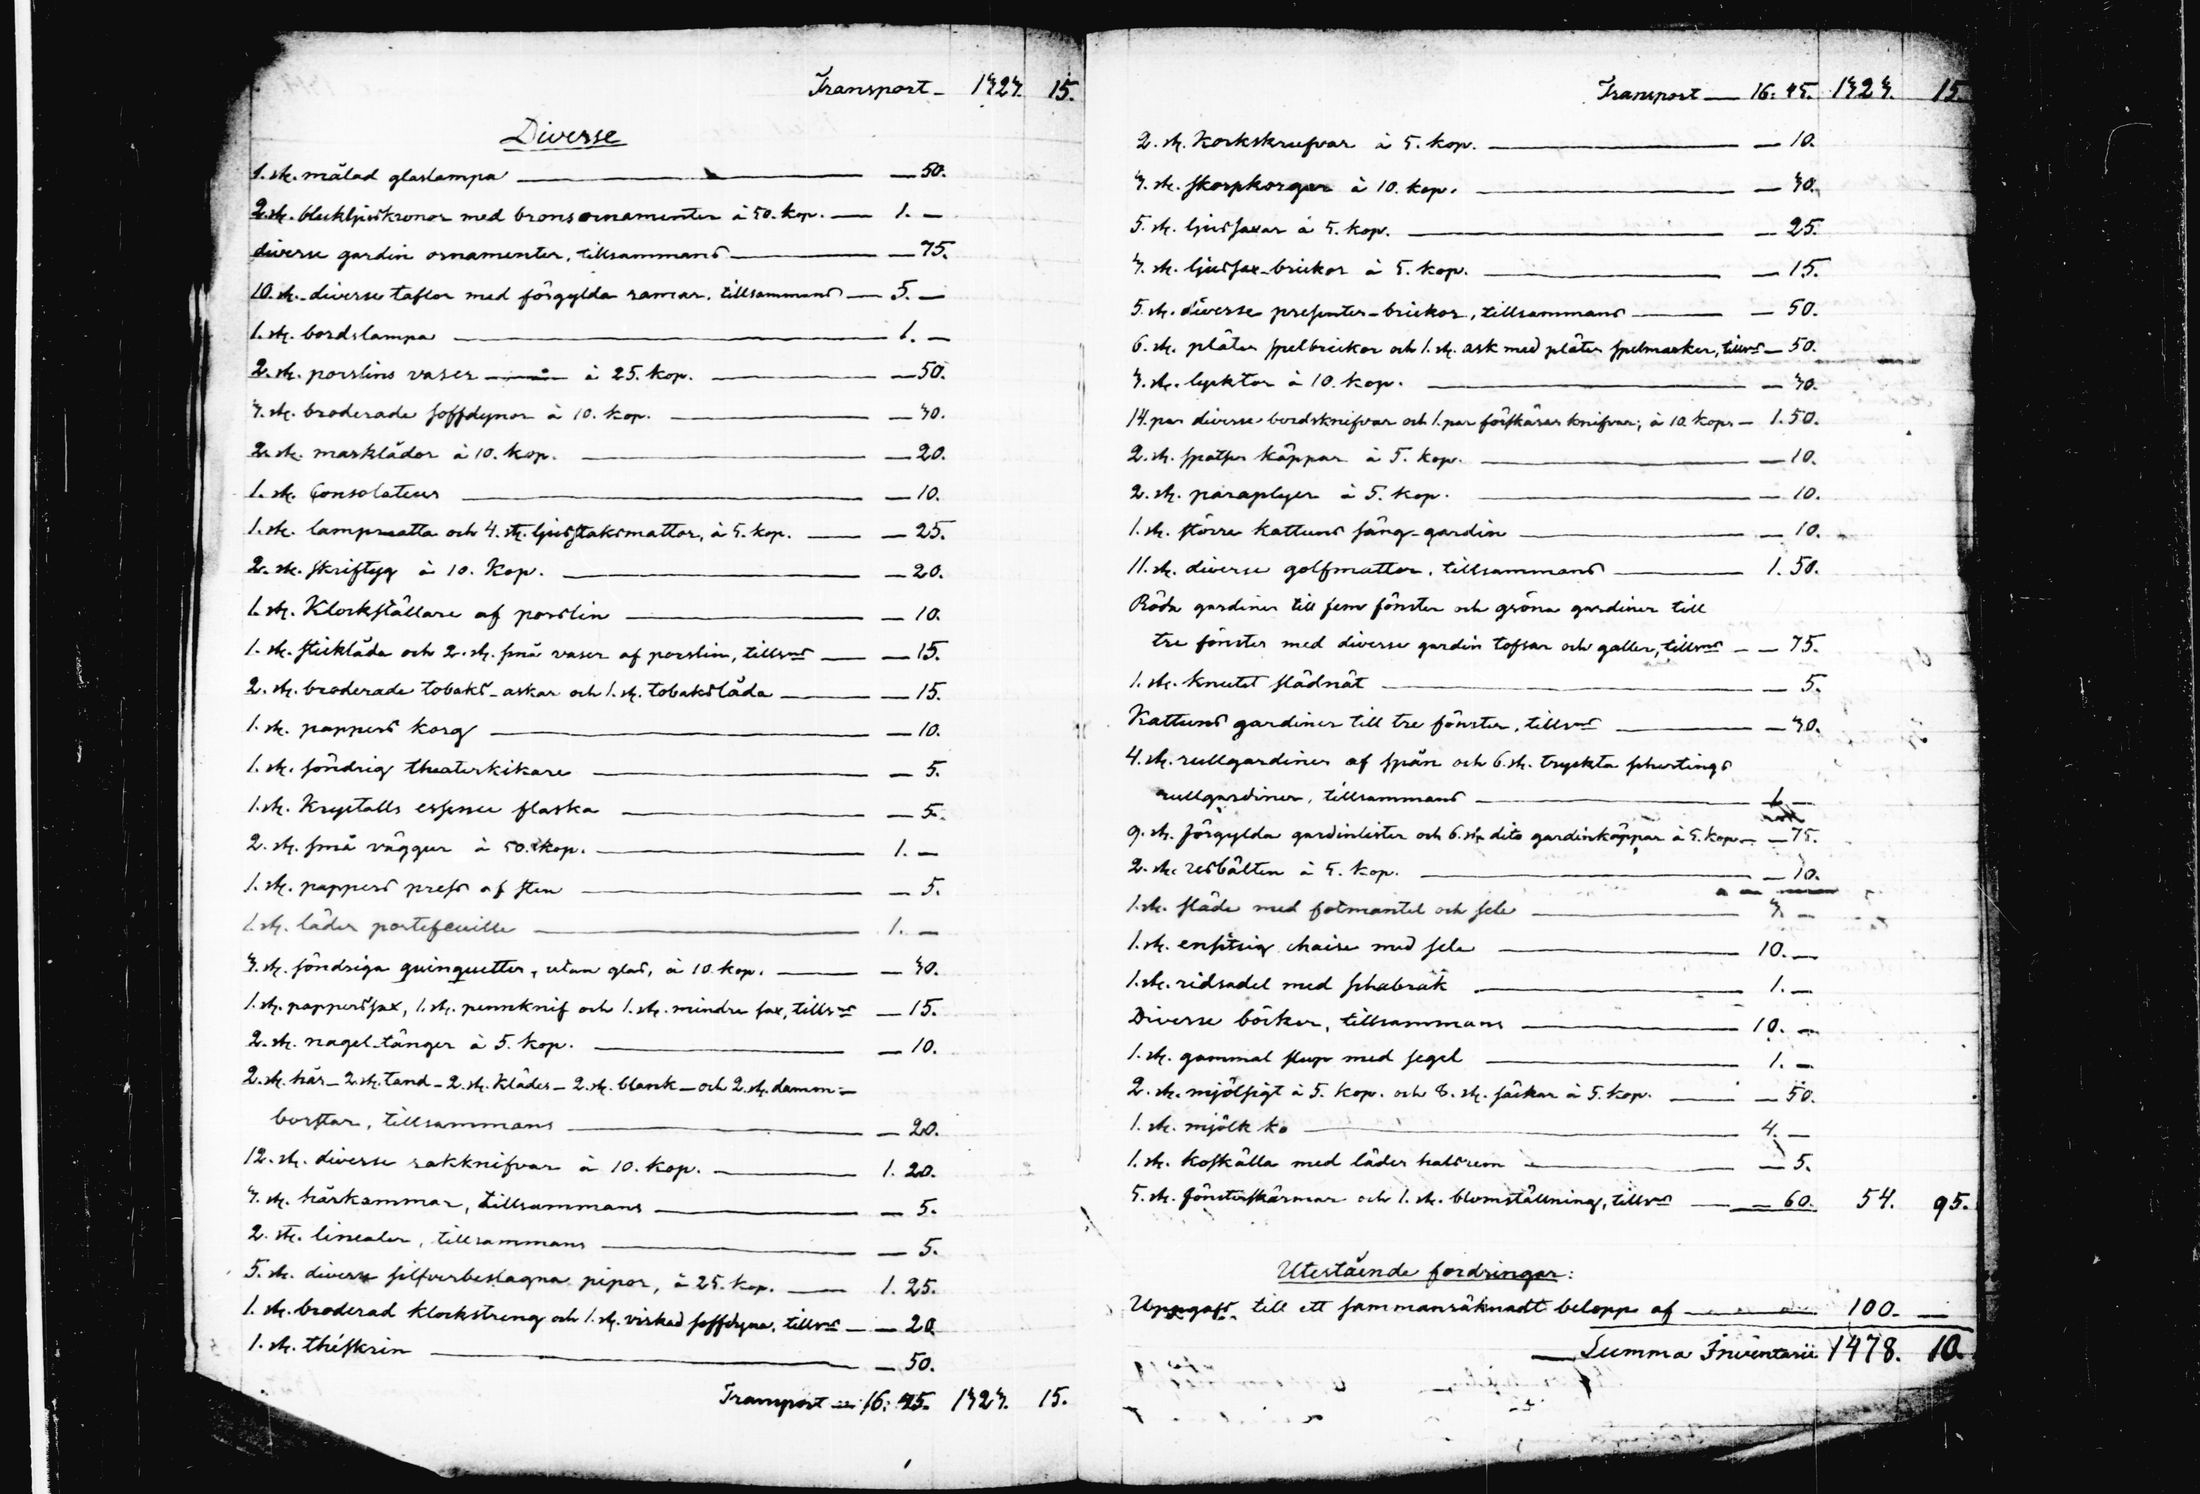 Transport — 1323. 15.
Diverse
1. st. målad glaslampa — 50.
2. st. bleckljuskronor med bronsornamenter à 50. kop. — 1. —
diverse gardin ornamenter, tillsammans — 75.
10. st. diverse taflor med förgylda ramar, tillsammans — 5. —
1. st. bordslampa — 1. —
2. st. porslins vaser — à 25. kop. — 50.
3. st. broderade soffdynor à 10. kop. — 30.
2. st. marklådor à 10. kop. — 20.
1. st. Consolateur — 10.
1. st. lampmatta och 4. st. ljusstaksmattor, à 5. kop. — 25.
2. st. skriftyg à 10. Kop. — 20.
1. st. Klockställare af porslin — 10.
1. st. sticklåda och 2. st. små vaser af porslin, tillsns — 15.
2. st. broderade tobaks-askar och 1. st. tobakslåda — 15.
1. st. pappers korg — 10.
1. st. söndrig theaterkikare — 5.
1. st. Krystalls essence flaska — 5.
2. st. små väggur à 50. kop. — 1. —
1. st. pappers press af sten — 5.
1. st. läder portefeuille — 1. —
3. st. söndriga quinquetter, utan glas, à 10. kop. — 30.
1. st. papperssax, 1. st. pennknif och 1. st. mindre sax, tillsns — 15.
2. st. nagel-tänger à 5. kop. — 10.
2. st. hår- 2. st. tand- 2. st. kläder- 2. st. blank- och 2. st. damm=
borstar, tillsammans — 20.
12. st. diverse rakknifvar à 10. kop. — 1. 20.
3. st. hårkammar, tillsammans — 5.
2. st. linealer, tillsammans — 5.
5. st. diverse silfverbeslagna pipor, à 25. kop. — 1. 25.
1. st. broderad klocksträng och 1. st. virkad soffdyna, tillsns — 20
1. st. théskrin — 50.
Transport — 16. 45. 1323. 15.
Transport — 16. 45. 1323. 15.
2. st. Korkskrufvar à 5. kop. — 10.
3. st. skorpkorgar à 10. kop. — 30.
5. st. ljussaxar à 5. kop. — 25.
3. st. ljussax-brickor à 5. kop. — 15.
5. st. diverse presenter-brickor, tillsammans — 50.
6. st. pläter spelbrickor och 1. st. ask med pläter spelmarker, tillsns — 50.
3. st. lycktor à 10. kop. — 30.
14. par diverse bordsknifvar och 1. par förskärar knifvar, à 10. kop. — 1. 50.
2. st. spatser käppar à 5. kop. — 10.
2. st. paraplyer à 5. kop. — 10.
1. st. större kattuns säng-gardin — 10.
11. st. diverse golfmattor, tillsammans — 1. 50.
Röda gardiner till fem fönster och gröna gardiner till
tre fönster med diverse gardin tofsar och galler, tillsns — 75.
1. st. knutet slädnät — 5.
Kattuns gardiner till tre fönster, tillsns — 30.
4. st. rullgardiner af spån och 6. st. tryckta shertings
rullgardiner, tillsammans — 1 —
9. st. förgylda gardinlister och 6. st. dito gardinkäppar à 5. kop. — 75.
2. st. resbälten à 5. kop. — 10.
1. st. släde med fotmantel och sele — 3. —
1. st. ensitsig chaise med sele — 10. —
1. st. ridsadel med schabrak — 1. —
Diverse böcker, tillsammans — 10. —
1. st. gammal slup med segel — 1. —
2. st. mjölsigt à 5. kop. och 8. st. säckar à 5. kop. — 50.
1. st. mjölk ko — 4. —
1. st. koskälla med läder halsrem — 5.
5. st. fönsterskärmar och 1. st. blomställning, tillsns — 60. 54. 95.
Utestående fordringar:
Uppgafs till ett sammanräknadt belopp af — 100. —
Summa Inventarii 1478. 10.